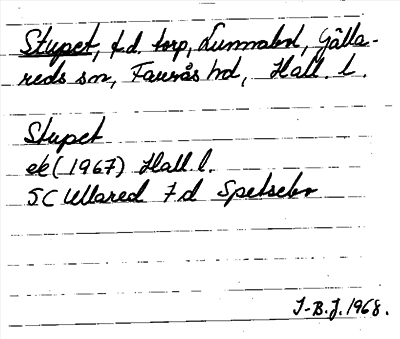 Stupet, f.d. torp, Lunnabol, Gälla-
reds sn, Faurås hd, Hall. l.
Stupet
ek (1967) Hall. l.
5C Ullared 7d Spetsebo
J-B.J. 1968.